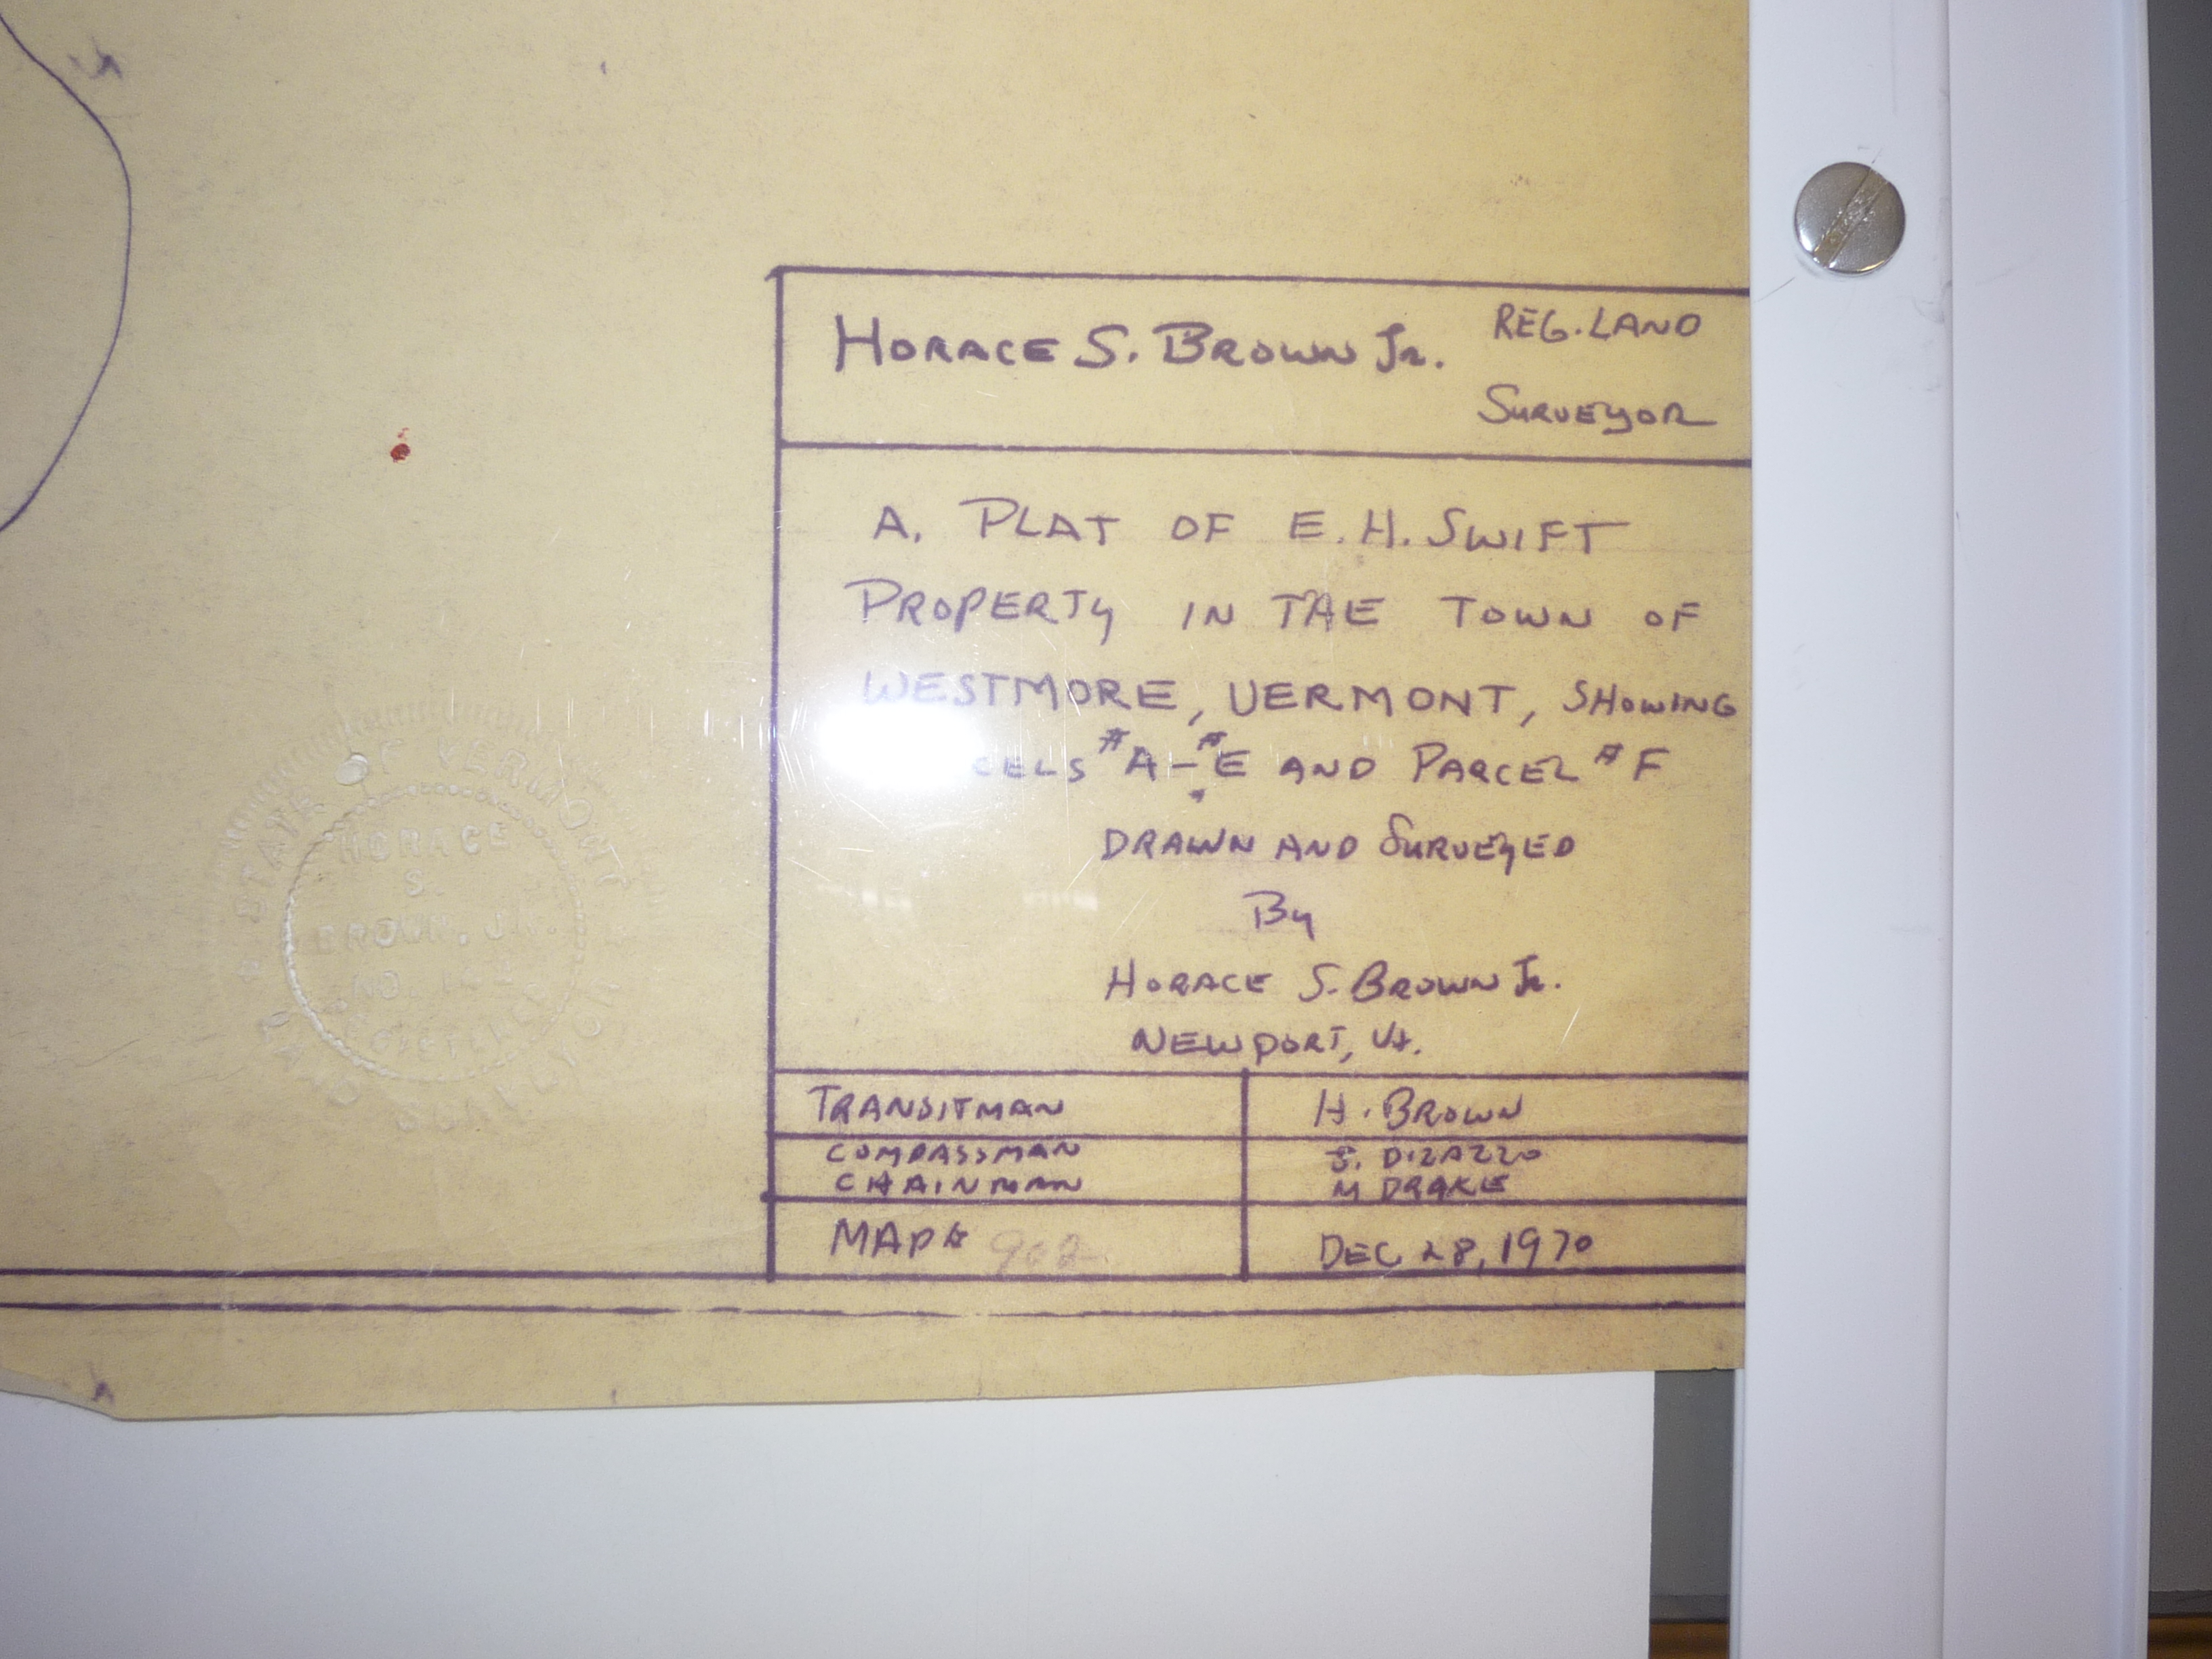 HORACE S. BROWN Jr. REG. LAND
SURVEYOR
A. PLAT OF E.H. SWIFT
PROPERTY IN THE TOWN OF
WESTMORE, VERMONT, SHOWING
CELS #A-#E AND PARCEL #F
DRAWN AND SURVEYED
By
HORACE S. BROWN Jr.
NEWPORT, Vt.
TRANSITMAN H. BROWN
COMPASSMAN DIZAZZO
CHAINMAN M DRAKE
MAP# 902 DEC 28, 1970
STATE OF VERMONT
HORACE
S.
BROWN, JR.
NO.
REGISTERED
LAND SURVEYOR